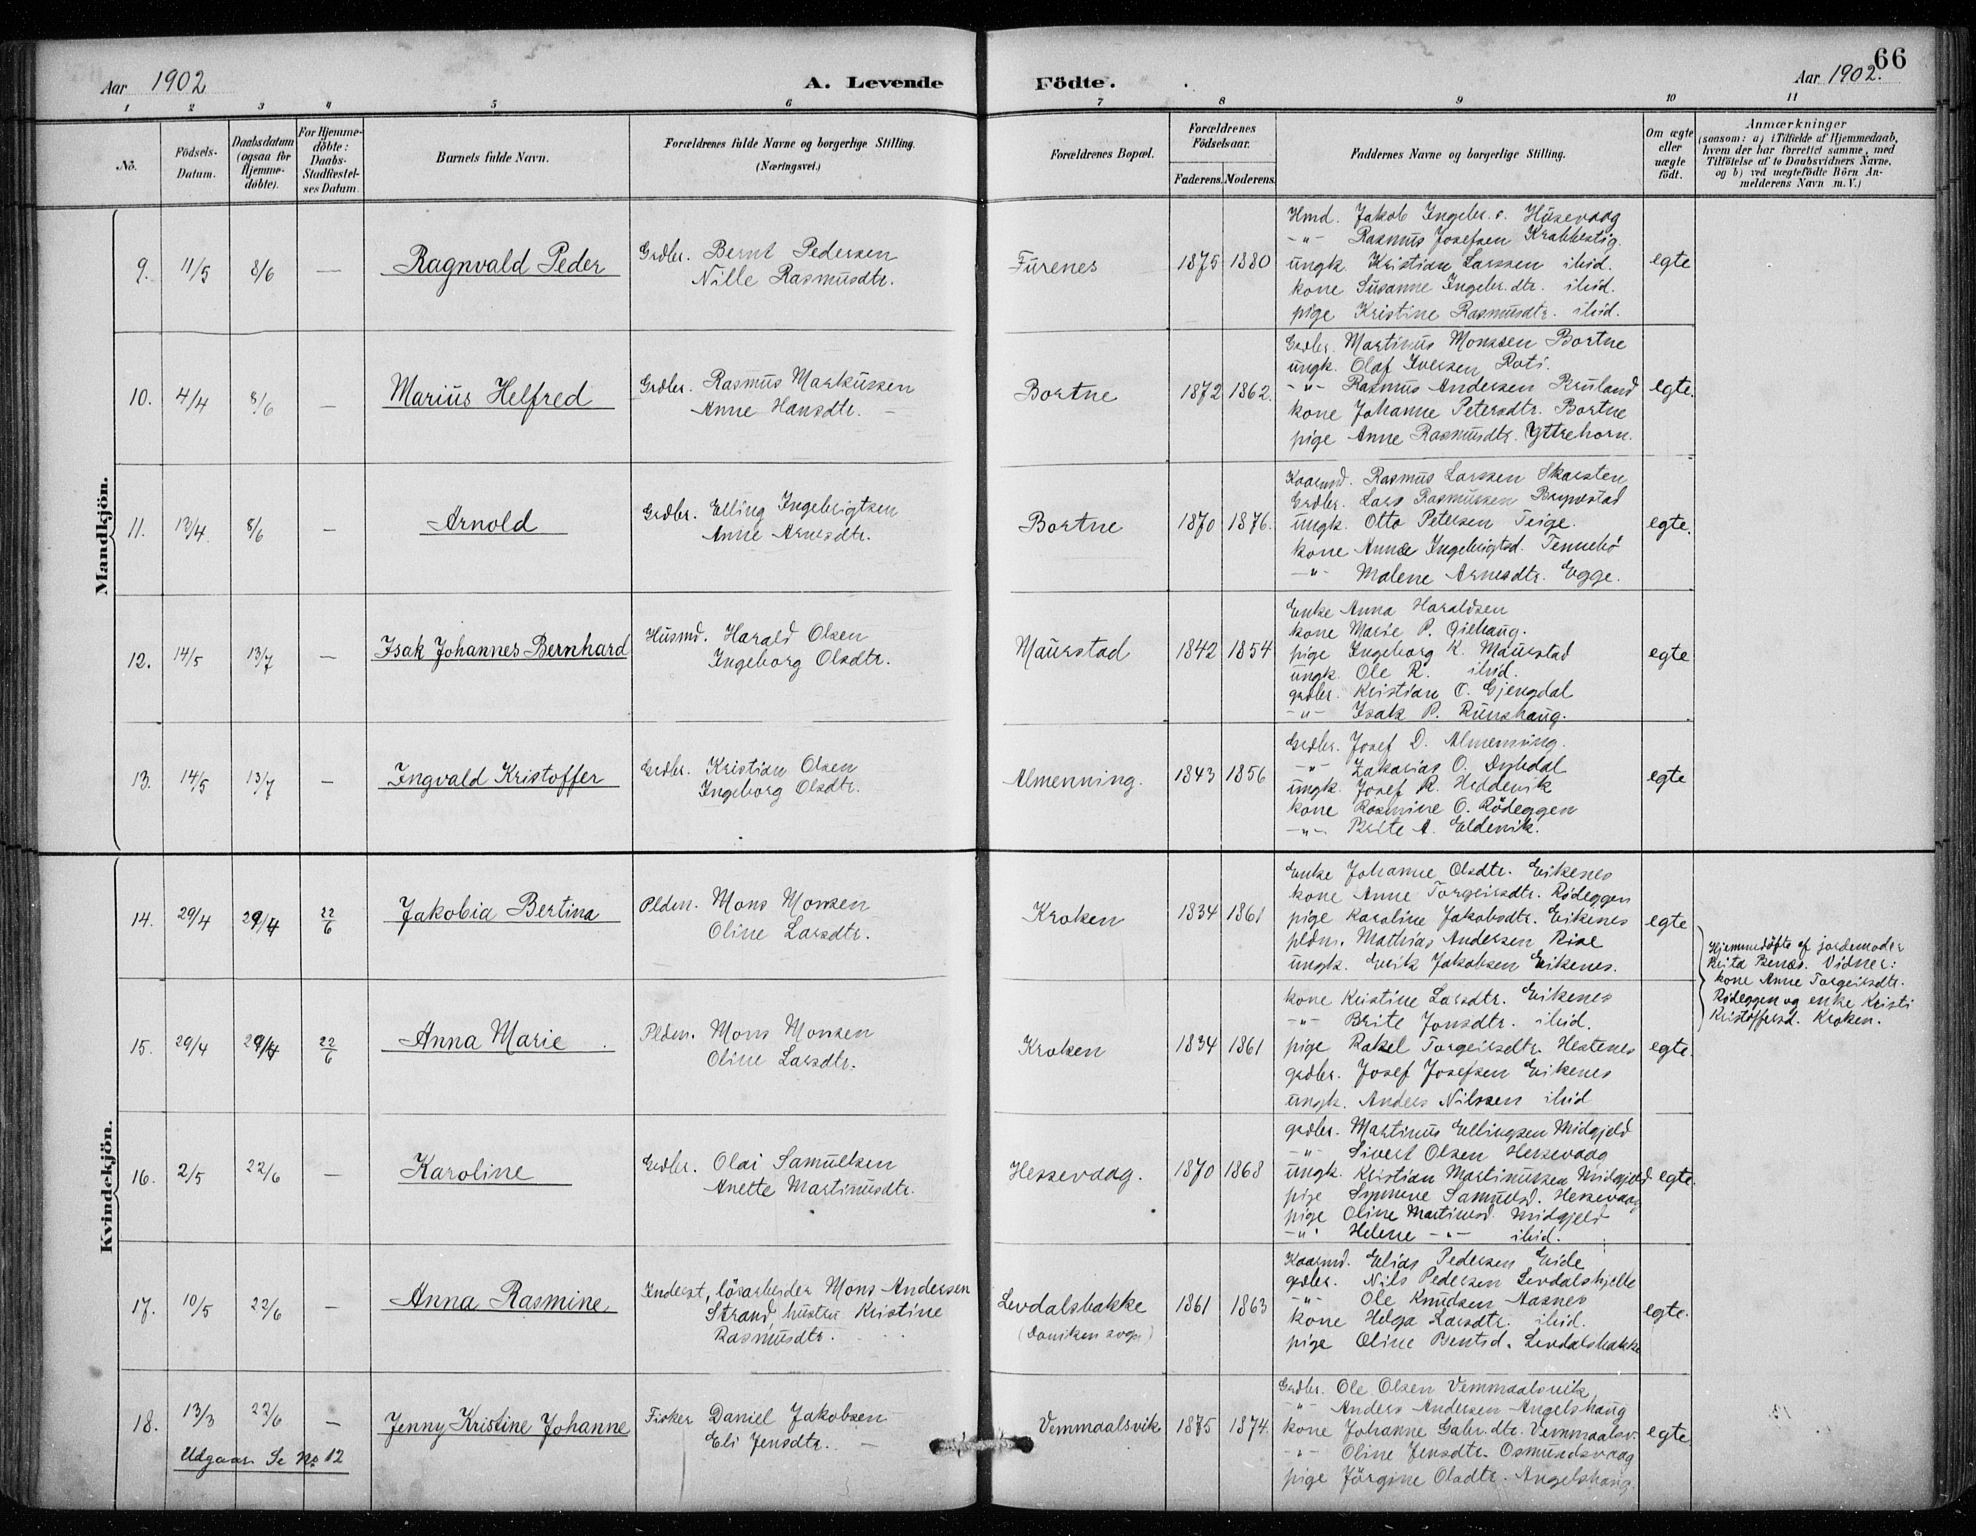 66
Aar 1902
A. Levende
Födte.
Aar 1902.
1 2 3 4 5 6 7 8 9 10 11
No.
Födsels-
Datum.
Daabsdatum
(ogsaa for
Hjemme-
döbte).
For Hjemme-
döbte:
Daabs-
Stadfæstel-
ses Datum.
Barnets fulde Navn.
Forældrenes fulde Navne og borgerlige Stilling.
(Næringsvei.)
Forældrenes Bopæl.
Forældrenes
Födselsaar.
Faderens. Moderens.
Faddernes Navne og borgerlige Stilling.
Om ægte
eller
uægte
födt.
Anmærkninger
(saasom: a) i Tilfælde af Hjemmedaab,
hvem der har forrettet samme, med
Tilföielse af to Daabsvidners Navne,
og b) ved uægtefödte Börn An-
melderens Navn m. V.)
Mandkjön.
9. 11/5 8/6 — Ragnvald Peder
Grdbr. Bernt Pedersen
Nille Rasmusdtr.
Furenes 1875 1880
Hmd. Jakob Ingebr.s. Husevaag
-"- Rasmus Josefsen Krabbestig.
ungk. Kristian Larssen ibid.
kone Susanne Ingebr.dtr. ibid.
pige Kristine Rasmusdtr. ibid.
egte
10. 4/4 8/6 — Marius Helfred
Grdbr. Rasmus Markussen
Anne Hansdtr. —
Bortne 1872 1862.
Grdbr. Martinus Monssen Bortne
ungk. Olaf Iversen Roti.
-"- Rasmus Andersen Bruland
kone Johanne Petersdtr. Bortne
pige Anne Rasmusdtr. Yttrehorn.
egte.
11. 13/4 8/6 — Arnold
Grdbr. Elling Ingebrigtsen
Anne Arnesdtr.
Bortne 1870 1876.
Kaarmd. Rasmus Larssen Skarsten
Grdbr. Lars Rasmussen Rypestad
ungk. Otto Petersen Teige.
kone Anne Ingebrigtsd. Tennebö
-"- Malene Arnesdtr. Egge.
egte.
12. 14/5 13/7 — Isak Johannes Bernhard
Husmd. Harald Olsen
Ingeborg Olsdtr.
Maurstad 1842 1854
Enke Anna Haraldsen
kone Marie P. Gilhaug.
pige Ingeborg K. Maurstad
ungk. Ole R. ibid.
grdbr. Kristian O. Gjengdal
-"- Isak P. Runshaug.
egte
13. 14/5 13/7 — Ingvald Kristoffer
Grdbr. Kristian Olsen
Ingeborg Olsdtr.
Almenning. 1843 1856
Grdbr. Josef D. Almenning.
-"- Zakarias O. Dybdal
ungk. Josef R. Heddevik
kone Rasmine O. Rödeggen
-"- Brite A. Eldevik.
egte
Kvindekjön.
14. 29/4 29/4 22/6 Jakobia Bertina
Pldm. Mons Monsen
Oline Larsdtr.
Kroken 1834 1861
Enke Johanne Olsdtr. Eikenes
kone Anne Torgeirsdtr. Rödeggen
pige Karoline Jakobsdtr. Eikenes
pldm. Mathias Andersen Rise
ungk. Erik Jakobsen Eikenes.
egte
Hjemmedøbte af jordemoder
Brita Benæs. Vidner:
kone Anne Torgeirsdtr.
Rödeggen og enke Kristi
Kristoffersd. Kroken.
15. 29/4 29/4 22/6 Anna Marie
Pldm. Mons Monsen
Oline Larsdtr.
Kroken 1834 1861
kone Kristine Larsdtr. Eikenes
-"- Brite Jonsdtr. ibid.
pige Rakel Torgeirsdtr. Hestenes
grdbr. Josef Josefsen Eikenes
ungk. Anders Nilssen ibid
egte.
16. 2/5 22/6 — Karoline
Grdbr. Olai Samuelsen
Anette Martinusdtr.
Hessevaag. 1870 1868
grdbr. Martinus Ellingsen Midgjeld
-"- Sivert Olsen Hessevaag
ungk. Kristian Martinussen Midgjeld
pige Synneve Samuelsd. Hessevaag
pige Oline Martinusd. Midgjeld
-"- Helene -"- ibid.
egte.
17. 10/5 22/6 — Anna Rasmine
Inderst, lösarbeider Mons Andersen
Strand, hustru Kristine
Rasmusdtr.
Levdalsbakke 1861 1863
(Daviken sogn)
Kaarmd. Elias Pedersen Eide
grdbr. Nils Pedersen Levdalshjelle
-"- Ole Knudsen Aasnes
kone Helga Larsdtr. ibid.
pige Oline Bentsd. Levdalsbakke
egte.
18. 13/3 22/6 — Jenny Kristine Johanne
Udgaar. Se No 12
Fisker Daniel Jakobsen
Eli Jensdtr. —
Vemmaalsvik 1875 1874.
Grdbr. Ole Olsen Vemmaalsvik
-"- Anders Andersen Angelshaug
kone Johanne Gabr.dtr. Vemmaalsv.
-"- Oline Jensdtr. Osmundsvaag
pige Jörgine Olsdtr. Angelshaug.
egte